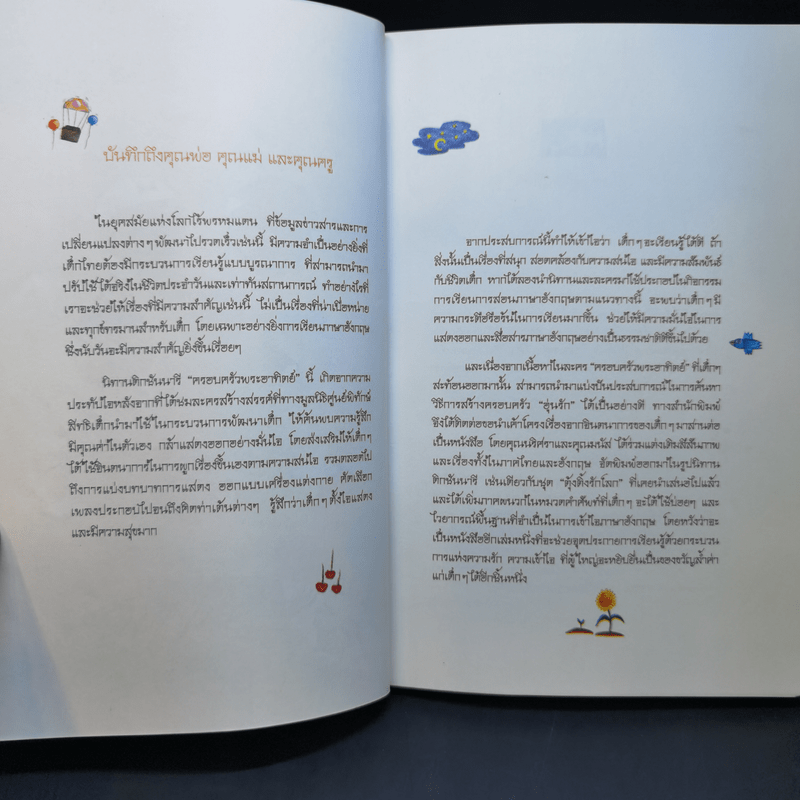 บันทึกถึงคุณพ่อ คุณแม่ และคุณครู
ในยุคสมัยแห่งโลกไร้พรหมแดน ที่ข้อมูลข่าวสารและการ
เปลี่ยนแปลงต่างๆพัฒนาไปรวดเร็วเช่นนี้ มีความจำเป็นอย่างยิ่งที่
เด็กไทยต้องมีกระบวนการเรียนรู้แบบบูรณาการ ที่สามารถนำมา
ปรับใช้ได้จริงในชีวิตประจำวันและเท่าทันสถานการณ์ ทำอย่างไรที่
เราจะช่วยให้เรื่องที่มีความสำคัญเช่นนี้ ไม่เป็นเรื่องที่น่าเบื่อหน่าย
และทุกข์ทรมานสำหรับเด็ก โดยเฉพาะอย่างยิ่งการเรียนภาษาอังกฤษ
ซึ่งนับวันจะมีความสำคัญยิ่งขึ้นเรื่อยๆ
นิทานดิกชันนารี “ครอบครัวพระอาทิตย์” นี้ เกิดจากความ
ประทับใจหลังจากที่ได้ชมละครสร้างสรรค์ที่ทางมูลนิธิศูนย์พิทักษ์
สิทธิเด็กนำมาใช้ในกระบวนการพัฒนาเด็ก ให้ค้นพบความรู้สึก
มีคุณค่าในตัวเอง กล้าแสดงออกอย่างมั่นใจ โดยส่งเสริมให้เด็กๆ
ได้ใช้จินตนาการในการผูกเรื่องขึ้นเองตามความสนใจ รวมตลอดไป
ถึงการแบ่งบทบาทการแสดง ออกแบบเครื่องแต่งกาย คัดเลือก
เพลงประกอบไปจนถึงคิดท่าเต้นต่างๆ รู้สึกว่าเด็กๆตั้งใจแสดง
และมีความสุขมาก
จากประสบการณ์นี้ทำให้เข้าใจว่า เด็กๆจะเรียนรู้ได้ดี ถ้า
สิ่งนั้นเป็นเรื่องที่สนุก สอดคล้องกับความสนใจ และมีความสัมพันธ์
กับชีวิตเด็ก หากได้ลองนำนิทานและละครมาใช้ประกอบในกิจกรรม
การเรียนการสอนภาษาอังกฤษตามแนวทางนี้ จะพบว่าเด็กๆมี
ความกระตือรือร้นในการเรียนมากขึ้น ช่วยให้มีความมั่นใจในการ
แสดงออกและสื่อสารภาษาอังกฤษอย่างเป็นธรรมชาติดีขึ้นไปด้วย
และเนื่องจากเนื้อหาในละคร “ครอบครัวพระอาทิตย์” ที่เด็กๆ
สะท้อนออกมานั้น สามารถนำมาแบ่งปันประสบการณ์ในการค้นหา
วิธีการสร้างครอบครัว “อุ่นรัก” ได้เป็นอย่างดี ทางสำนักพิมพ์
จึงได้ติดต่อขอนำเค้าโครงเรื่องจากจินตนาการของเด็กๆมาสานต่อ
เป็นหนังสือ โดยคุณนริศราและคุณมนัส ได้ร่วมแต่งเติมสีสันภาพ
และเรื่องทั้งในภาคไทยและอังกฤษ จัดพิมพ์ออกมาในรูปนิทาน
ดิกชันนารี เช่นเดียวกับชุด “ตุ้งติ้งรักโลก” ที่เคยนำเสนอไปแล้ว
และได้เพิ่มภาคผนวกในหมวดคำศัพท์ที่เด็กๆ จะได้ใช้บ่อยๆ และ
ไวยากรณ์พื้นฐานที่จำเป็นในการเข้าใจภาษาอังกฤษ โดยหวังว่าจะ
เป็นหนังสืออีกเล่มหนึ่งที่จะช่วยจุดประกายการเรียนรู้ด้วยกระบวน
การแห่งความรัก ความเข้าใจ ที่ผู้ใหญ่จะหยิบยื่นเป็นของขวัญล้ำค่า
แก่เด็กๆได้อีกชิ้นหนึ่ง